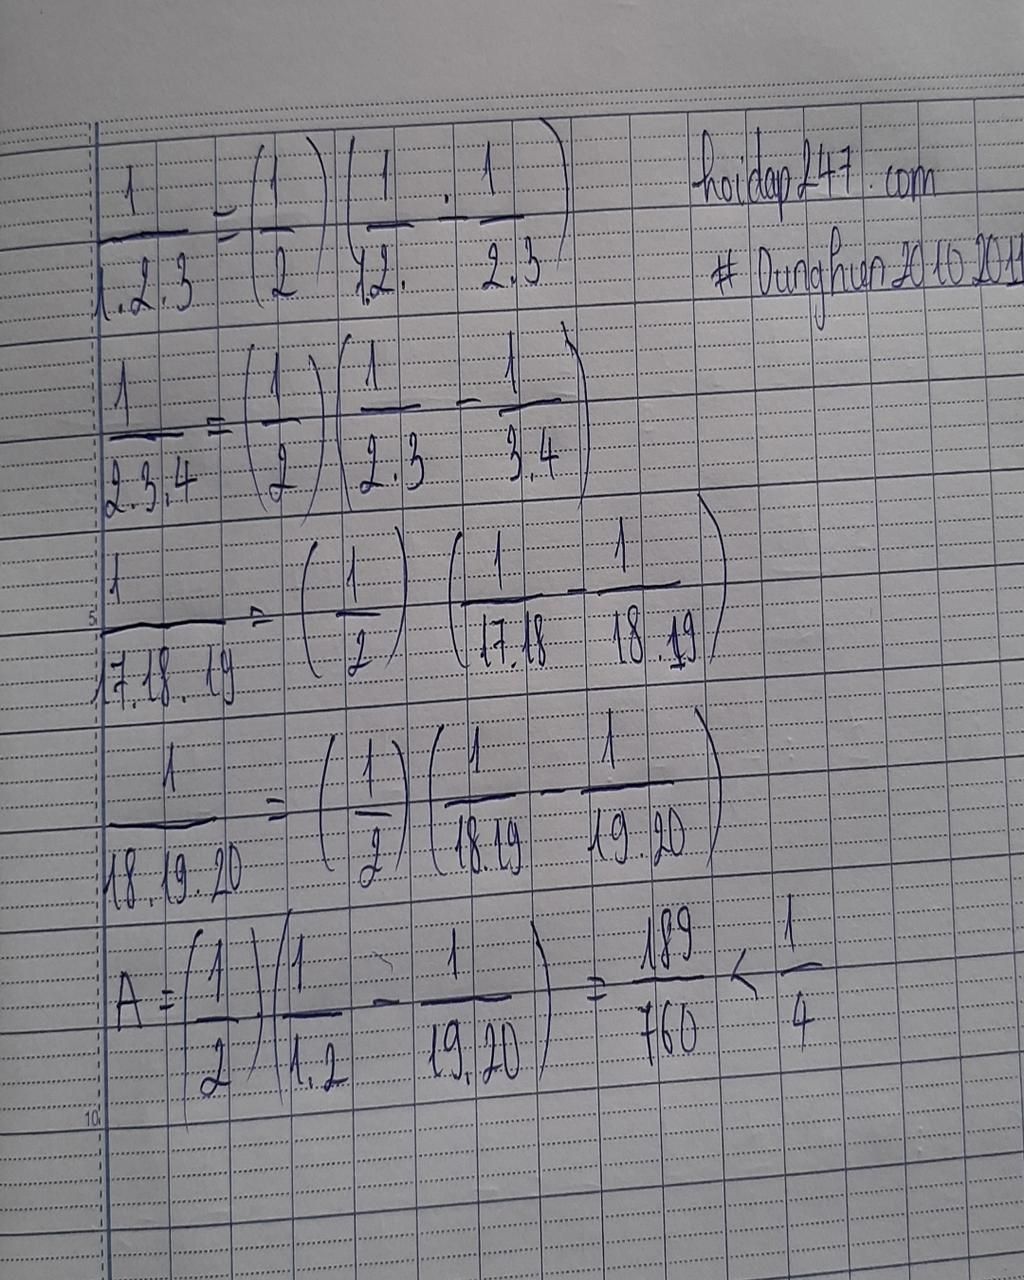 1/1.2.3 = (1/2) (1/1.2. - 1/2.3)
hoidap247.com
# Dunghun20102011
1/2.3.4 = (1/2) (1/2.3 - 1/3.4)
5
1/17.18.19 = (1/2) (1/17.18 - 1/18.19)
1/18.19.20 = (1/2) (1/18.19 - 1/19.20)
A = (1/2) (1/1.2 - 1/19.20) = 189/760 < 1/4
10